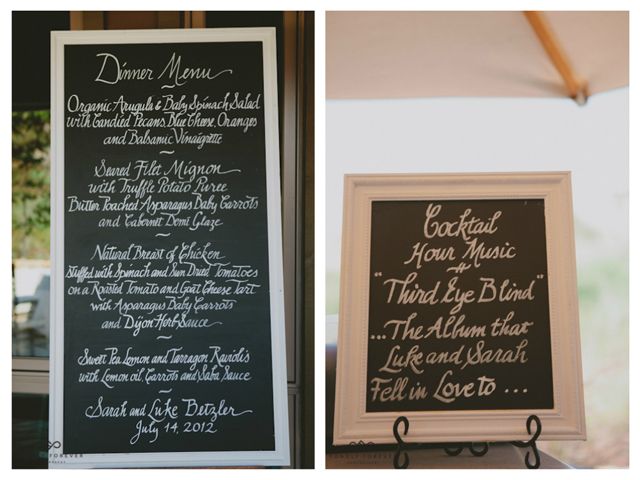 Dinner Menu
Organic Arugula & Baby Spinach Salad
with Candied Pecans, Blue Cheese, Oranges
and Balsamic Vinaigrette
Seared Filet Mignon
with Truffle Potato Puree
Butter Poached Asparagus Baby Carrots
and Cabernet Demi Glaze
Natural Breast of Chicken
Stuffed with Spinach and Sun Dried Tomatoes
on a Roasted Tomato and Goat Cheese Tart
with Asparagus Baby Carrots
and Dijon Herb Sauce
Sweet Pea Lemon and Tarragon Raviolis
with Lemon oil, Carrots and Saba Sauce
Sarah and Luke Betzler
July 14, 2012
Cocktail
Hour Music
"Third Eye Blind"
...The Album that
Luke and Sarah
Fell in Love to ...